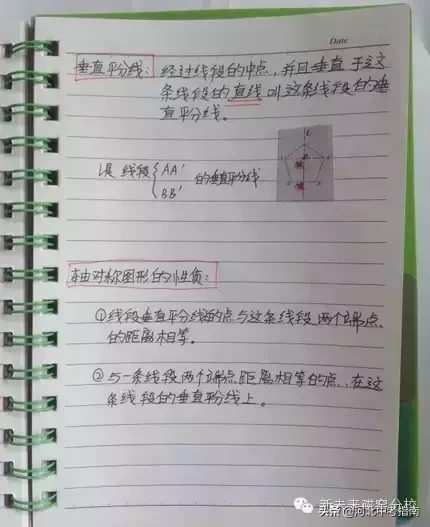 Date
垂直平分线：经过线段的中点，并且垂直于这
条线段的直线叫这条线段的垂
直平分线。
l是线段{AA′
BB′
的垂直平分线
l
轴对称图形的性质：
①线段垂直平分线的点与这条线段两个端点
的距离相等。
②与一条线段两个端点距离相等的点，在这
条线段的垂直平分线上。
新未来磁窑分校
头条@河北中考指南